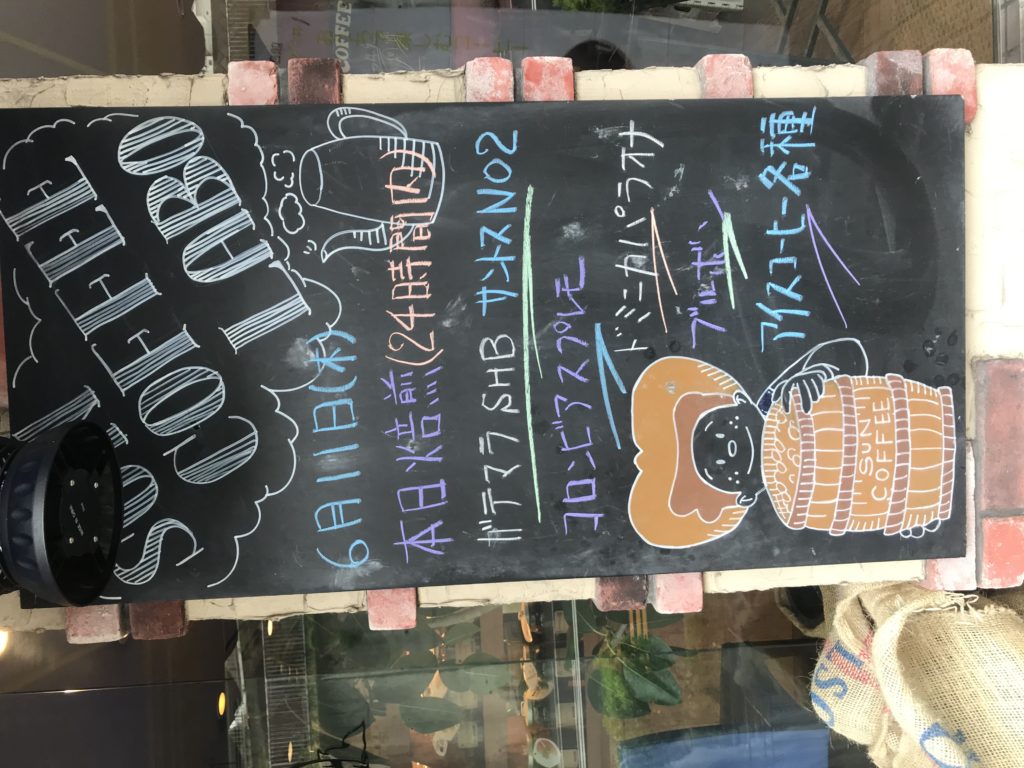 COFFEE
LABO
6月11日(木)
本日焙煎(24時間内)
ガテマラSHB サントスNO2
コロンビアスプレモ
ドミニカバラオナ
ブルボン
アイスコーヒー各種
"SUN"
COFFEE
COFFEE